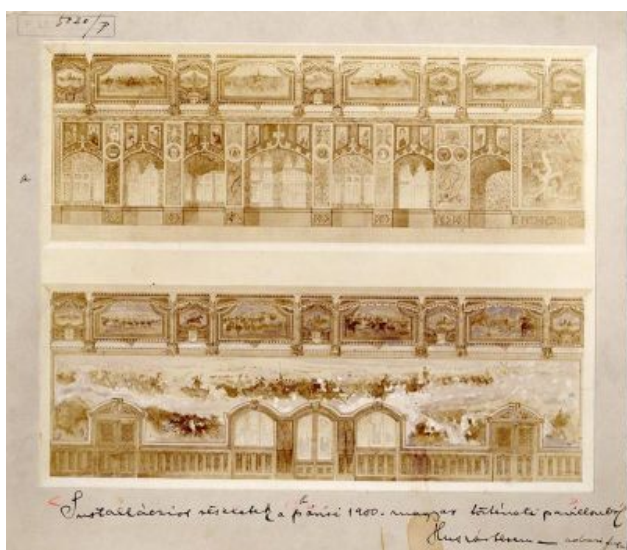 5020/F
Installációs részletek a párisi 1900. magyar történeti pavillonból
Huszárterem —